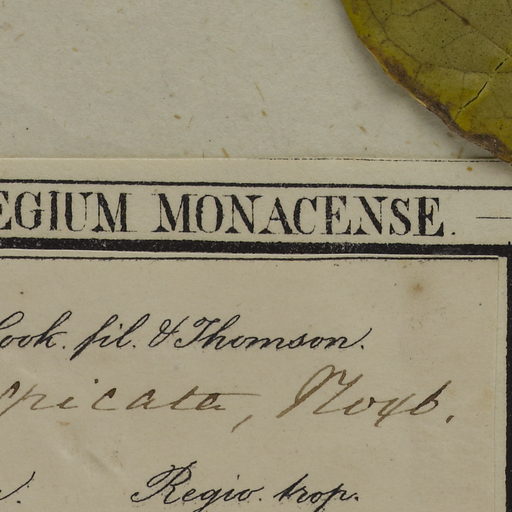 EGIUM MONACENSE.
ook. fil. & Thomson.
picata, Roxb.
Regio. trop.